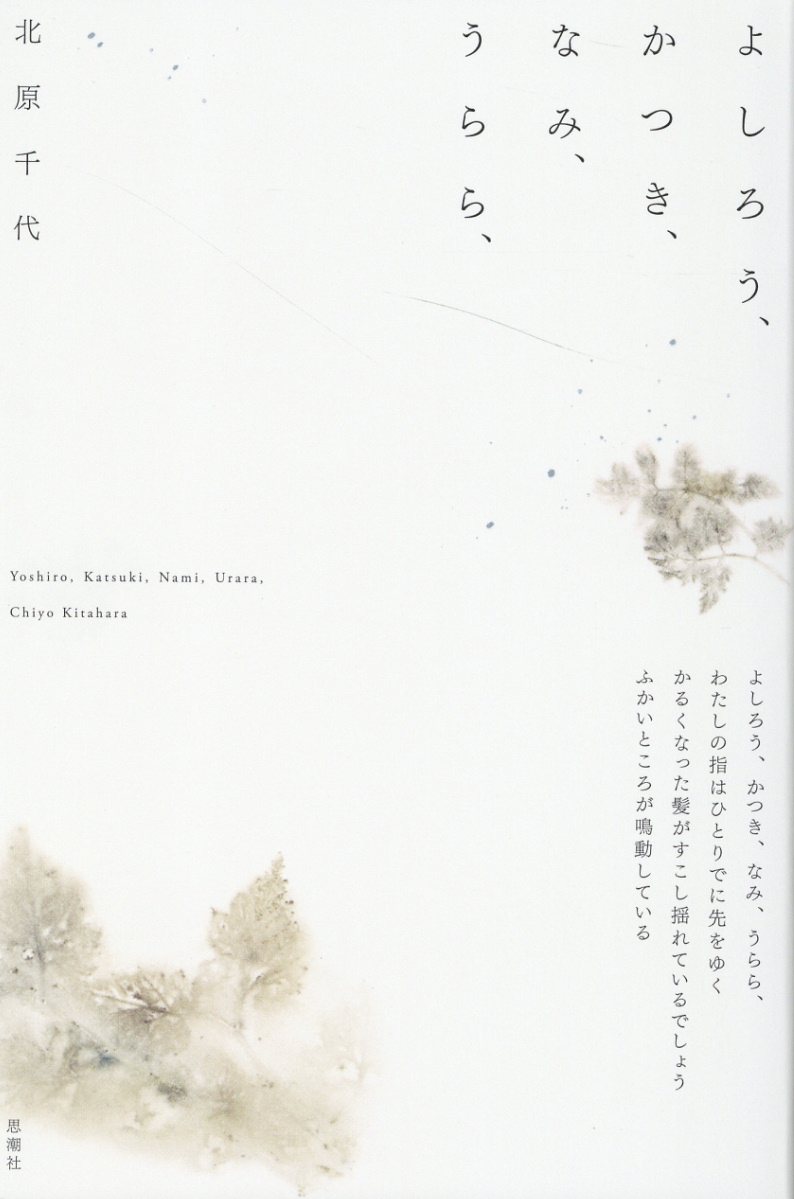 よしろう、
かつき、
なみ、
うらら、
北原千代
Yoshiro, Katsuki, Nami, Urara,
Chiyo Kitahara
よしろう、かつき、なみ、うらら、
わたしの指はひとりでに先をゆく
かるくなった髪がすこし揺れているでしょう
ふかいところが鳴動している
思潮社